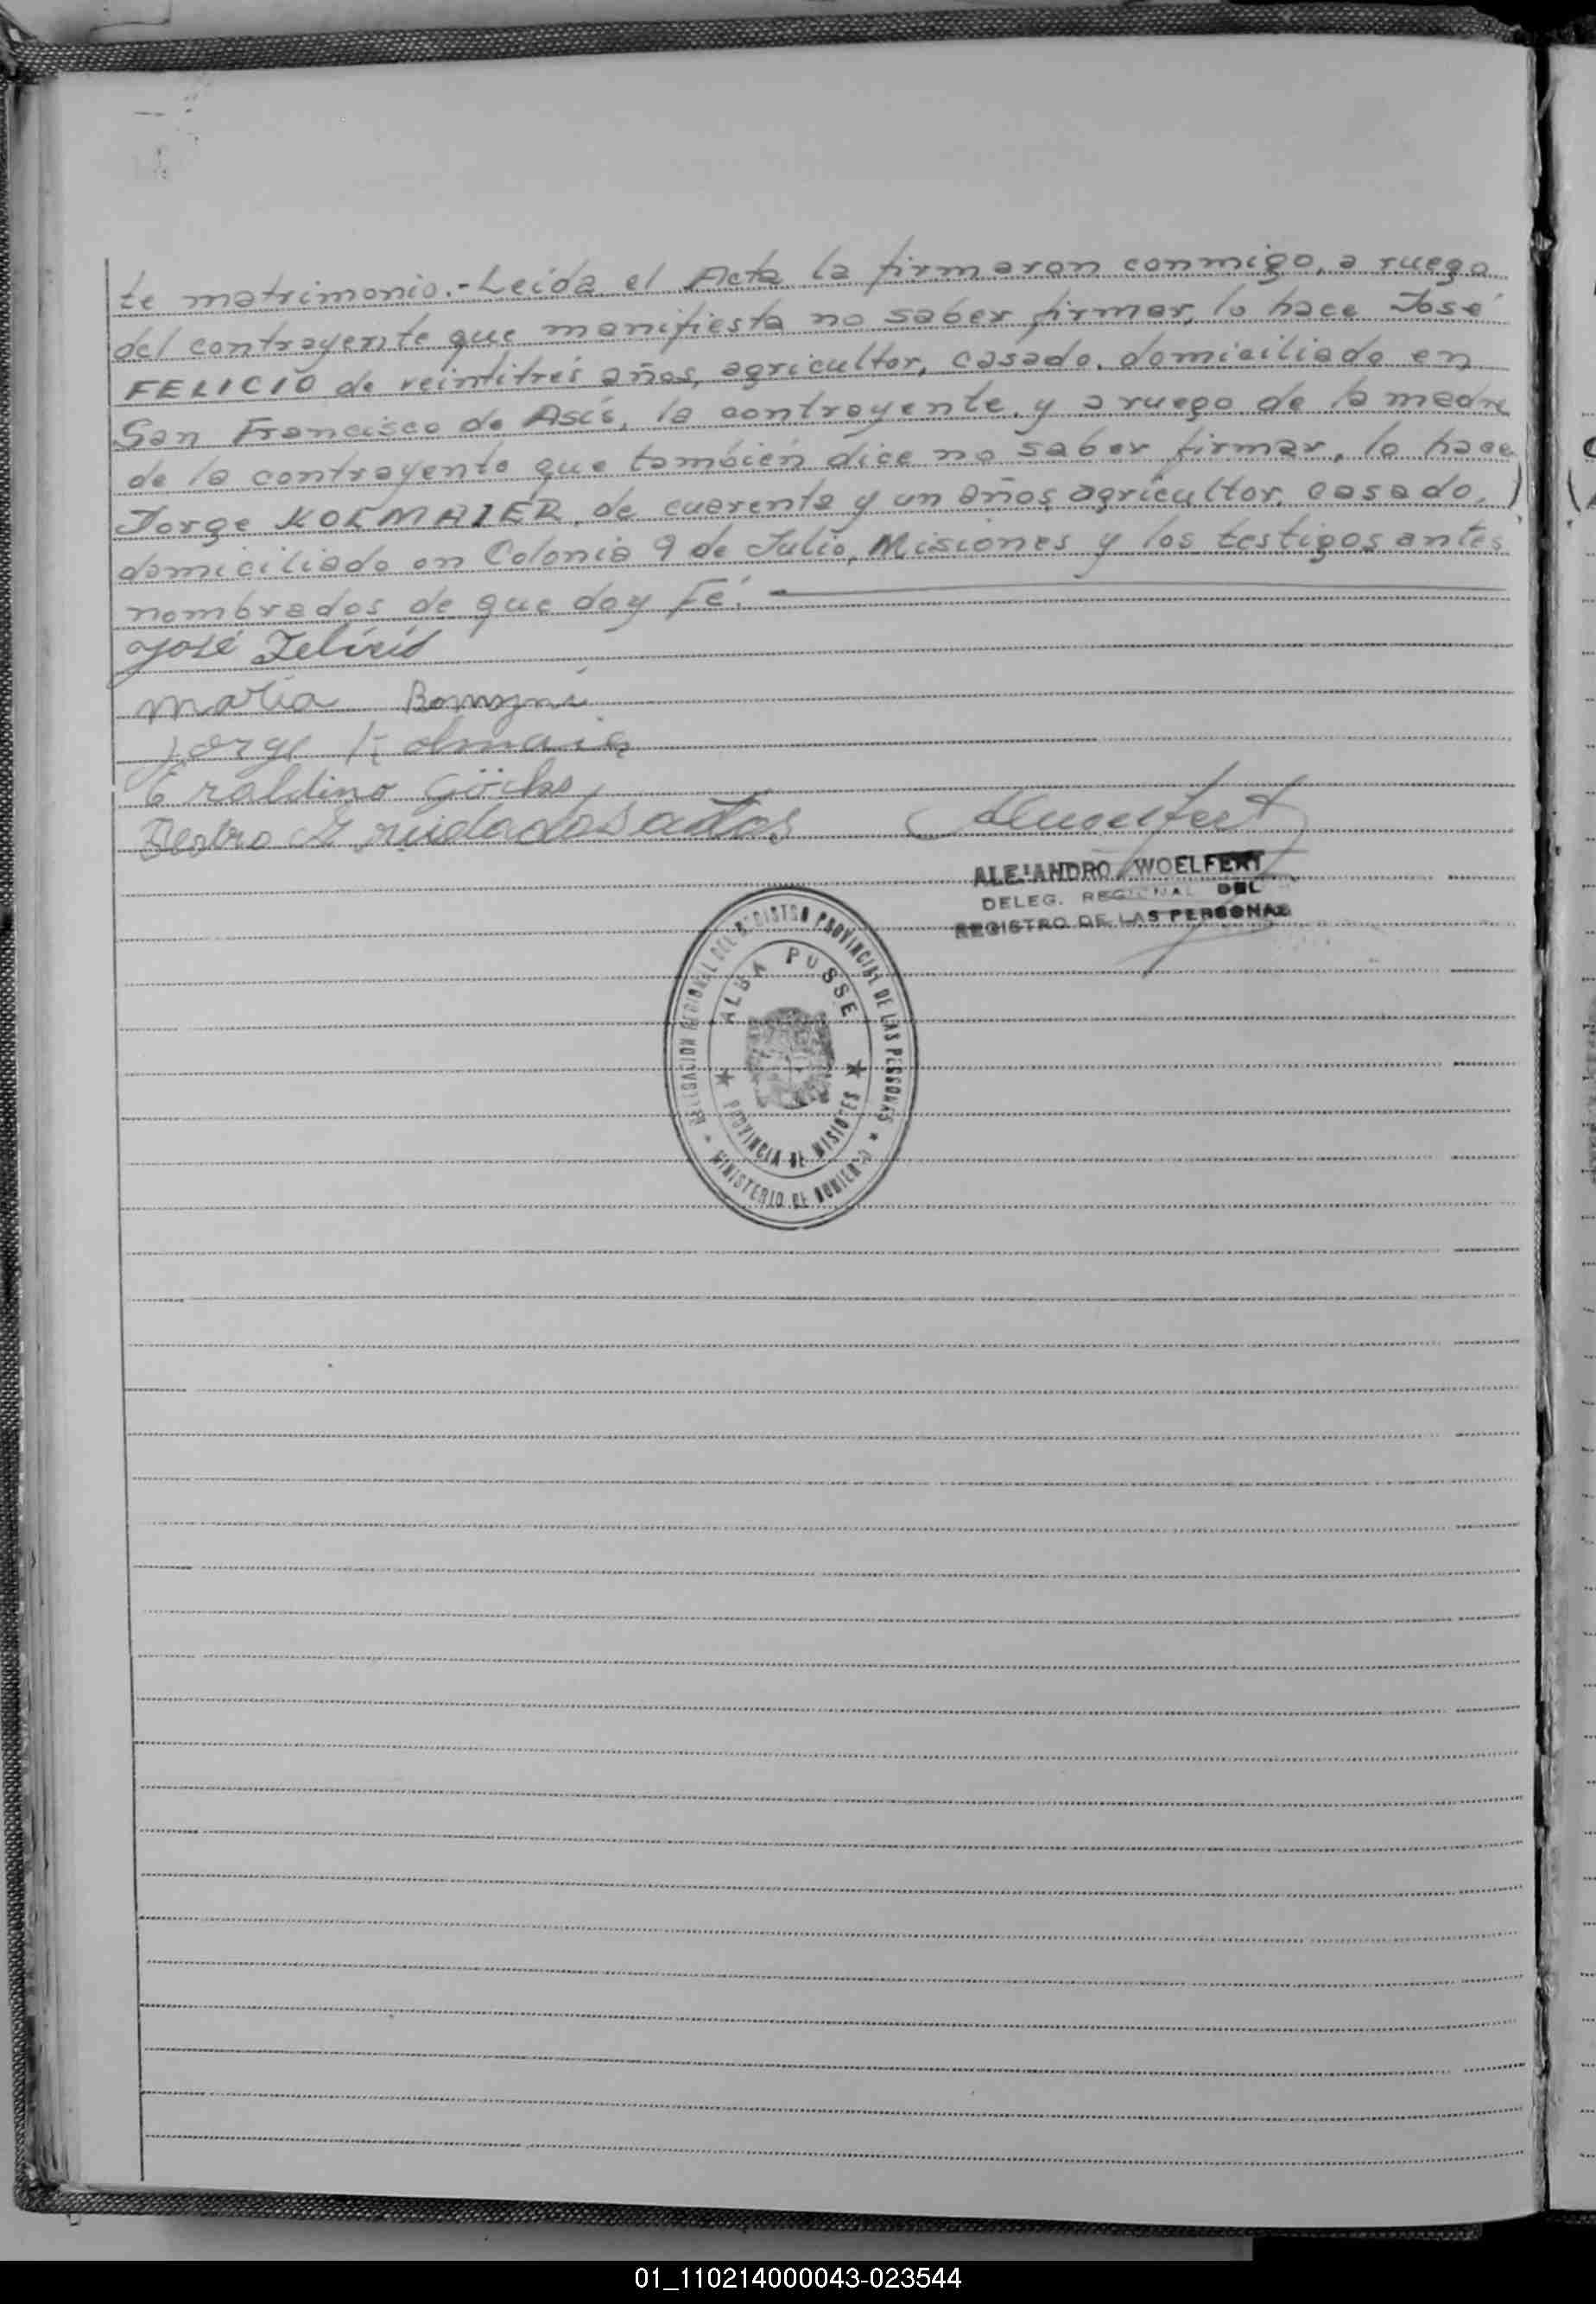 te matrimonio.-Leída el Acta la firmaron conmigo, a ruego
del contrayente que manifiesta no saber firmar, lo hace José
FELICIO de veintitrés años, agricultor, casado, domiciliado en
San Francisco de Asís, la contrayente, y a ruego de la madre
de la contrayente que también dice no saber firmar, lo hace
Jorge KOLMAIER, de cuarenta y un años, agricultor, casado,
domiciliado en Colonia 9 de Julio, Misiones y los testigos antes
nombrados de que doy Fé.
José Felicio
Maria
Jorge Kolmaier
Eraldino Göcks
Pedro
ALEJANDRO WOELFERT
DELEG. REGIONAL DEL
REGISTRO DE LAS PERSONAS
DELEGACION REGIONAL DEL REGISTRO PROVINCIAL DE LAS PERSONAS
ALBA POSSE
PROVINCIA DE MISIONES
MINISTERIO DE GOBIERNO
01_110214000043-023544